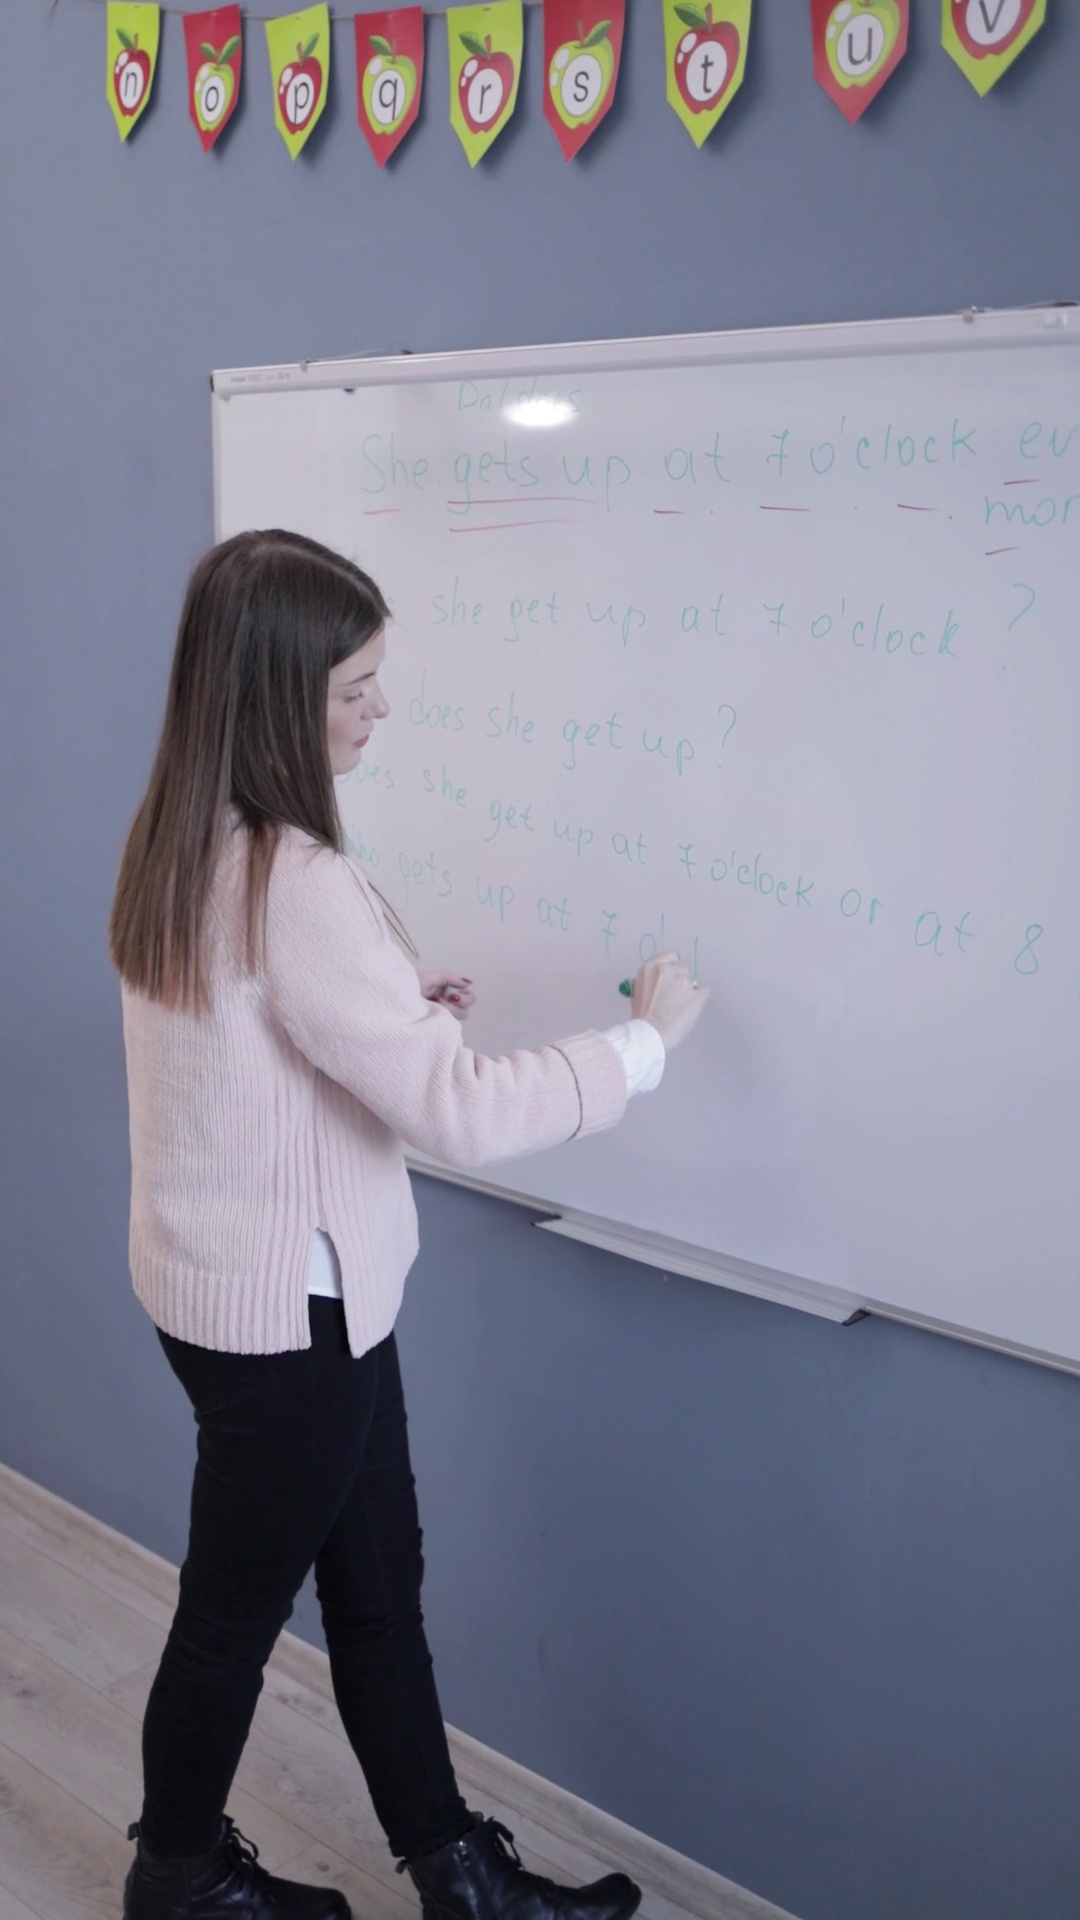 n o p q r s t u v
Do/does
She gets up at 7 o'clock ev
mor
she get up at 7 o'clock ?
does she get up?
Does she get up at 7 o'clock or at 8
Who gets up at 7 o'cl